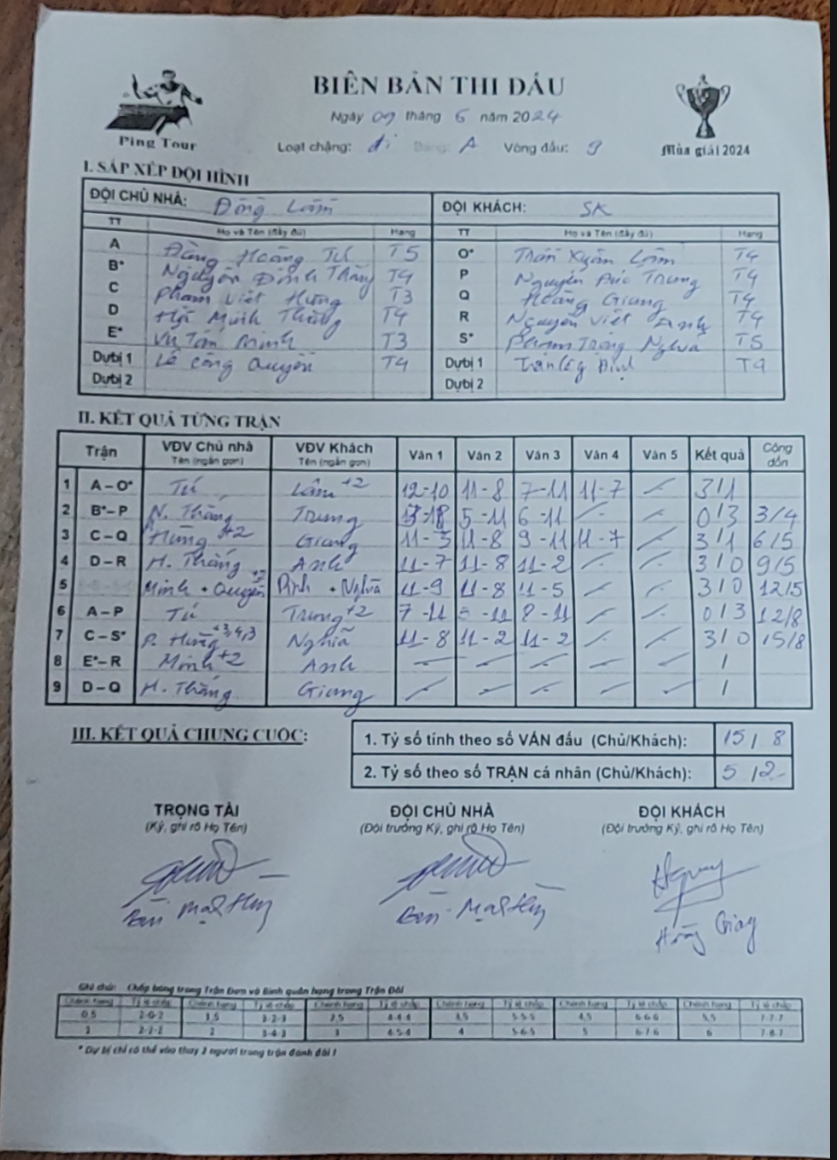 BIÊN BẢN THI ĐẤU
Ping Tour
Ngày 09 tháng 6 năm 2024
Mùa giải 2024
Loạt chặng: đi Bảng: A Vòng đấu: 9
I. SẮP XẾP ĐỘI HÌNH
ĐỘI CHỦ NHÀ: Đông Lâm ĐỘI KHÁCH: SK
TT Họ và Tên (đầy đủ) Hạng TT Họ và Tên (đầy đủ) Hạng
A Đặng Hoàng Tú T5 O* Trần Xuân Lâm T4
B* Nguyễn Đình Thắng T4 P Nguyễn Đức Trung T4
C Phạm Việt Hưng T3 Q Hoàng Giang T4
D Minh Thắng T4 R Nguyễn Việt Anh T4
E* Vũ Tân Minh T3 S* Phạm Trọng Nghĩa T5
Dự bị 1 Lê Công Quyền T4 Dự bị 1 T4
Dự bị 2 Dự bị 2
II. KẾT QUẢ TỪNG TRẬN
Trận VĐV Chủ nhà VĐV Khách Ván 1 Ván 2 Ván 3 Ván 4 Ván 5 Kết quả Cộng dồn
Tên (ngắn gọn) Tên (ngắn gọn)
1 A – O* Tú Lâm +2 12-10 11-8 7-11 11-7 / 3/1
2 B* – P N. Thắng Trung 5-11 6-11 / / 0/3 3/4
3 C – Q Hưng +2 Giang 11-5 11-8 9-11 11-7 / 3/1 6/5
4 D – R H. Thắng Anh 11-7 11-8 11-2 / / 3/0 9/5
5 Minh + Quyền Định + Nghĩa 11-9 11-8 11-5 / / 3/0 12/5
6 A – P Tú Trung +2 7-11 -11 8-11 / / 0/3 12/8
7 C – S* P. Hưng +3,4,3 Nghĩa 11-8 11-2 11-2 / / 3/0 15/8
8 E* – R Minh +2 Anh / / / / / /
9 D – Q H. Thắng Giang / / / / / /
III. KẾT QUẢ CHUNG CUỘC:
1. Tỷ số tính theo số VÁN đấu (Chủ/Khách): 15/8
2. Tỷ số theo số TRẬN cá nhân (Chủ/Khách): 5/2
TRỌNG TÀI ĐỘI CHỦ NHÀ ĐỘI KHÁCH
(Ký, ghi rõ Họ Tên) (Đội trưởng Ký, ghi rõ Họ Tên) (Đội trưởng Ký, ghi rõ Họ Tên)
Hoàng Giang
Ghi chú: Chấp bóng trong Trận Đơn và Bình quân hạng trong Trận Đôi
Chênh hạng Tỷ lệ chấp Chênh hạng Tỷ lệ chấp Chênh hạng Tỷ lệ chấp Chênh hạng Tỷ lệ chấp Chênh hạng Tỷ lệ chấp Chênh hạng Tỷ lệ chấp
0,5 2-0-2 1,5 3-2-3 2,5 4-4-4 3,5 5-5-5 4,5 6-6-6 5,5 7-7-7
1 2-2-2 2 3-4-3 3 4-5-4 4 5-6-5 5 6-7-6 6 7-8-7
* Dự bị chỉ có thể vào thay 2 người trong trận đánh đôi !